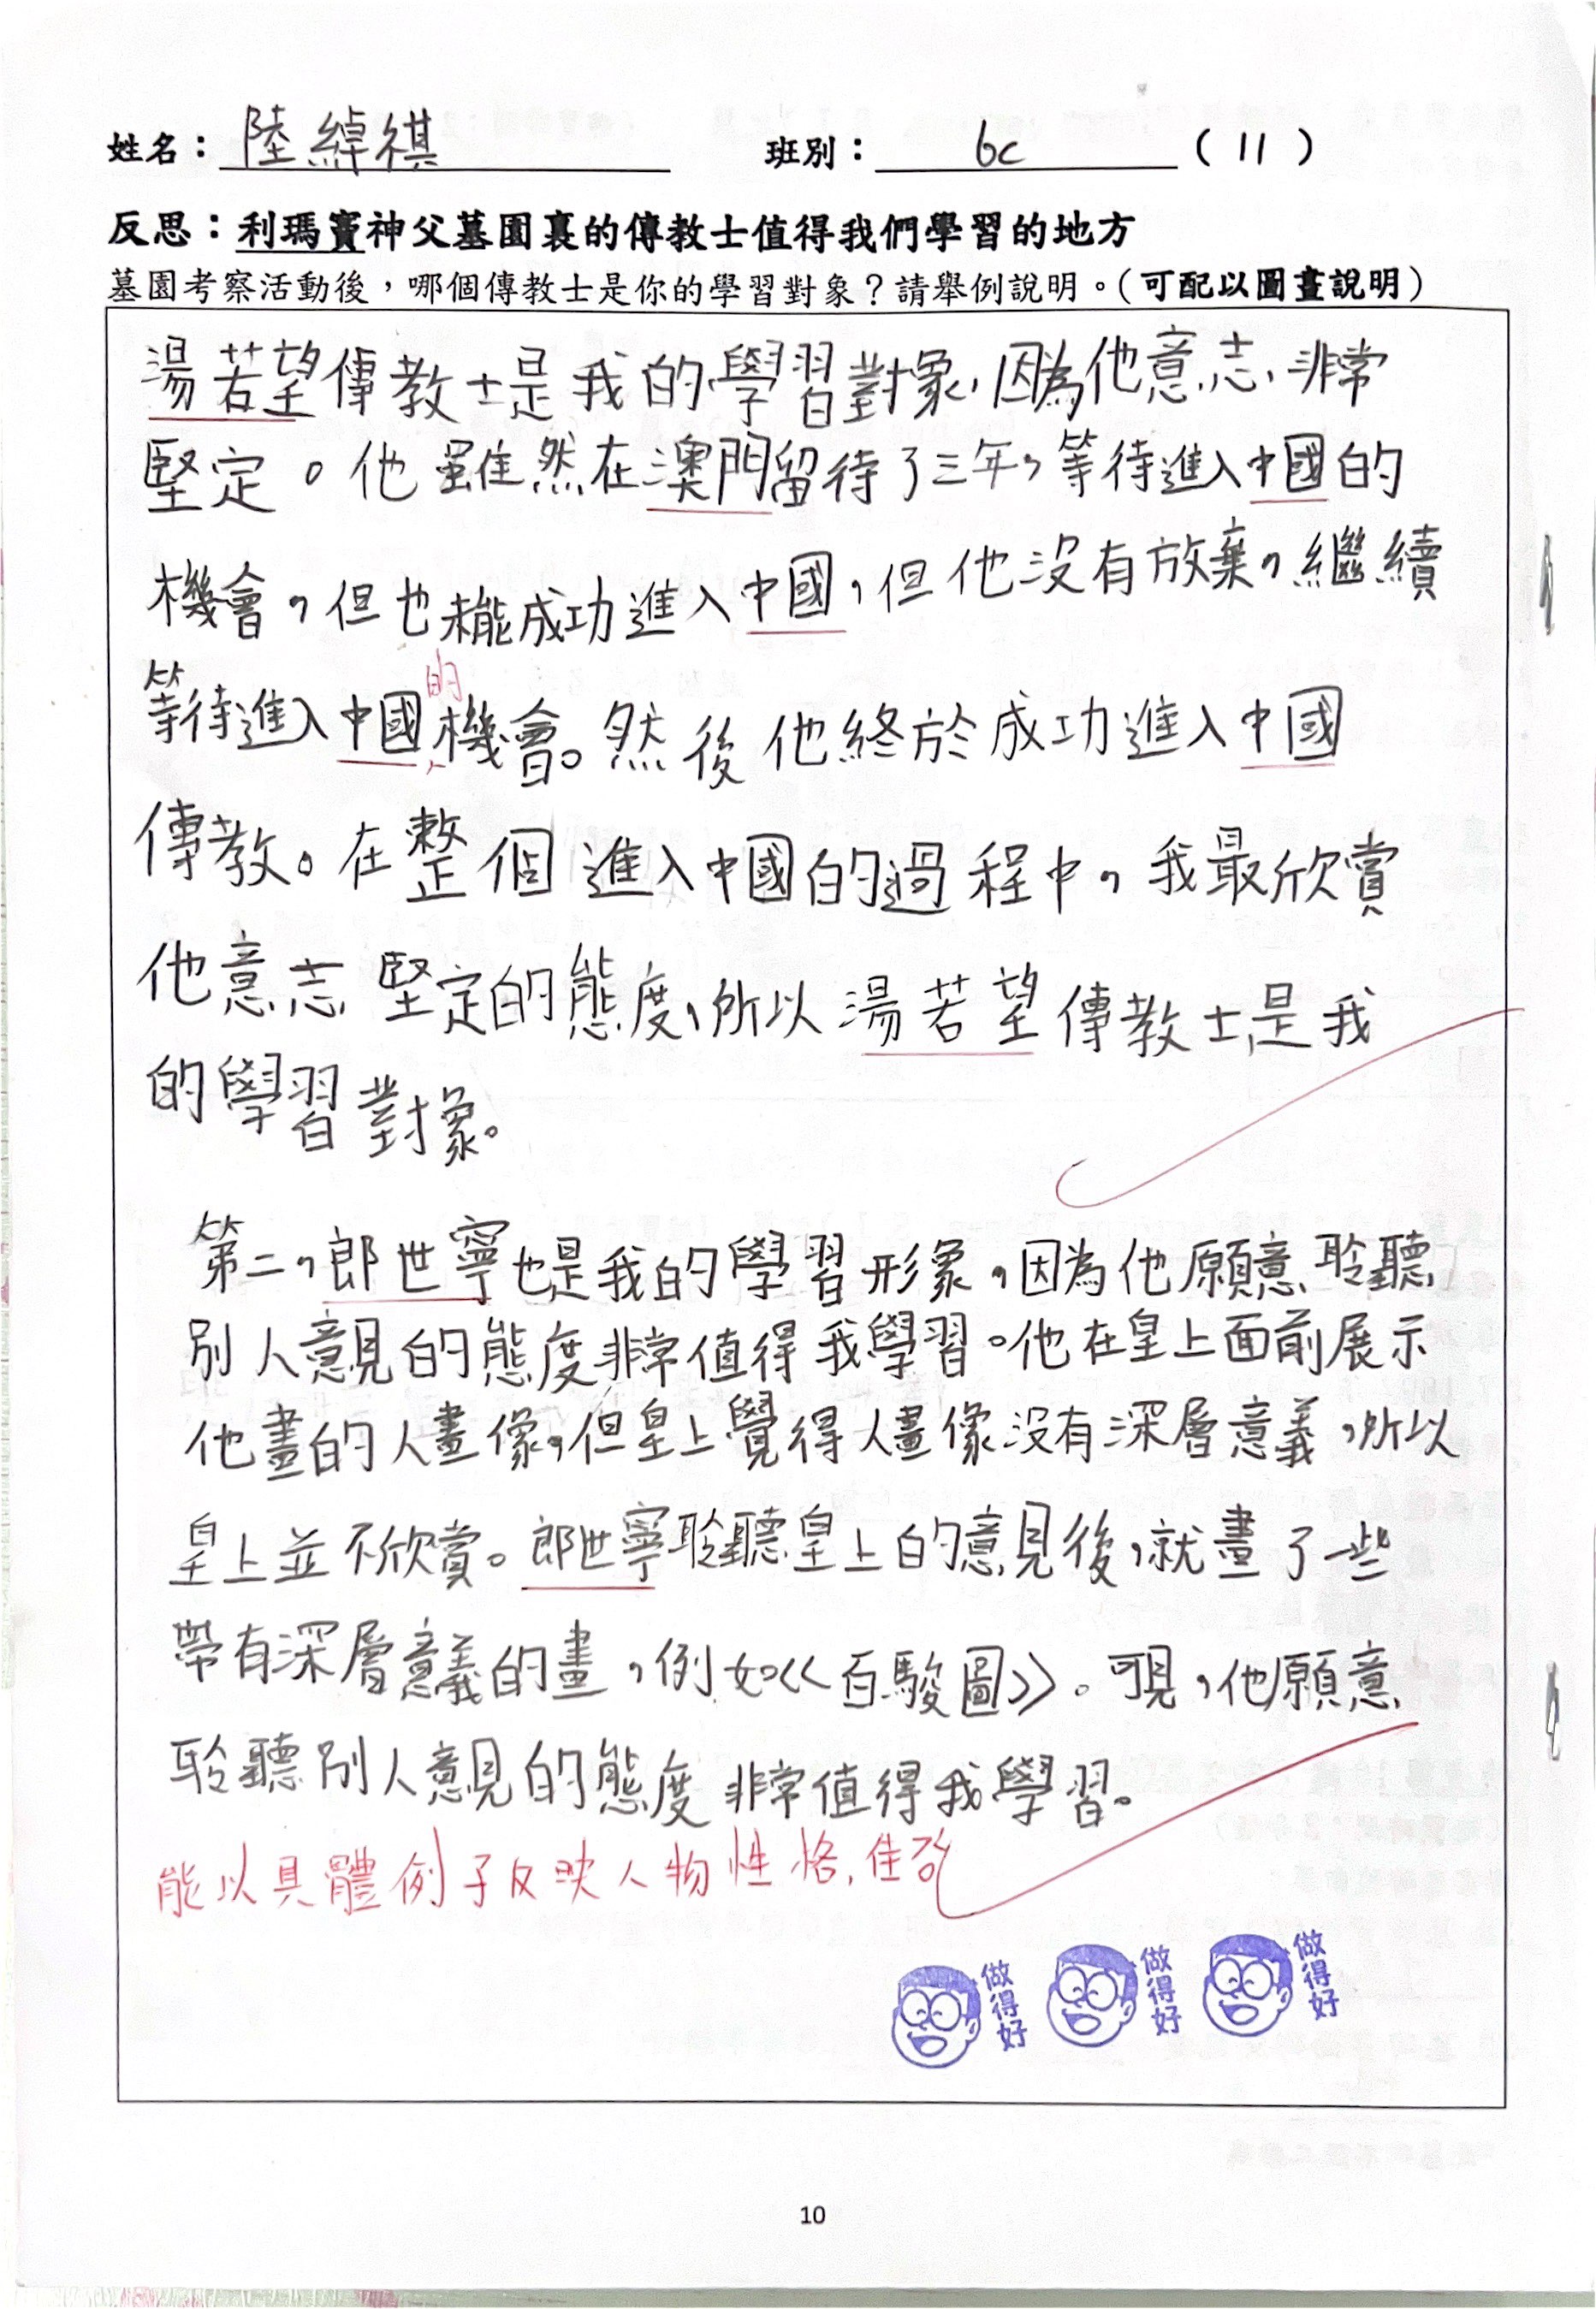 姓名：陸綽祺 班別：6c（11）
反思：利瑪竇神父墓園裏的傳教士值得我們學習的地方
墓園考察活動後，哪個傳教士是你的學習對象？請舉例說明。（可配以圖畫說明）
湯若望傳教士是我的學習對象，因為他意志非常
堅定。他雖然在澳門留待了三年，等待進入中國的
機會，但也未能成功進入中國，但他沒有放棄，繼續
等待進入中國的機會。然後他終於成功進入中國
傳教。在整個進入中國的過程中，我最欣賞
他意志堅定的態度，所以湯若望傳教士是我
的學習對象。
第二，郎世寧也是我的學習形象，因為他願意聆聽
別人意見的態度非常值得我學習。他在皇上面前展示
他畫的人畫像，但皇上覺得人畫像沒有深層意義，所以
皇上並不欣賞。郎世寧聆聽皇上的意見後，就畫了一些
帶有深層意義的畫，例如《百駿圖》。可見，他願意
聆聽別人意見的態度非常值得我學習。
能以具體例子反映人物性格，佳
做得好 做得好 做得好
10